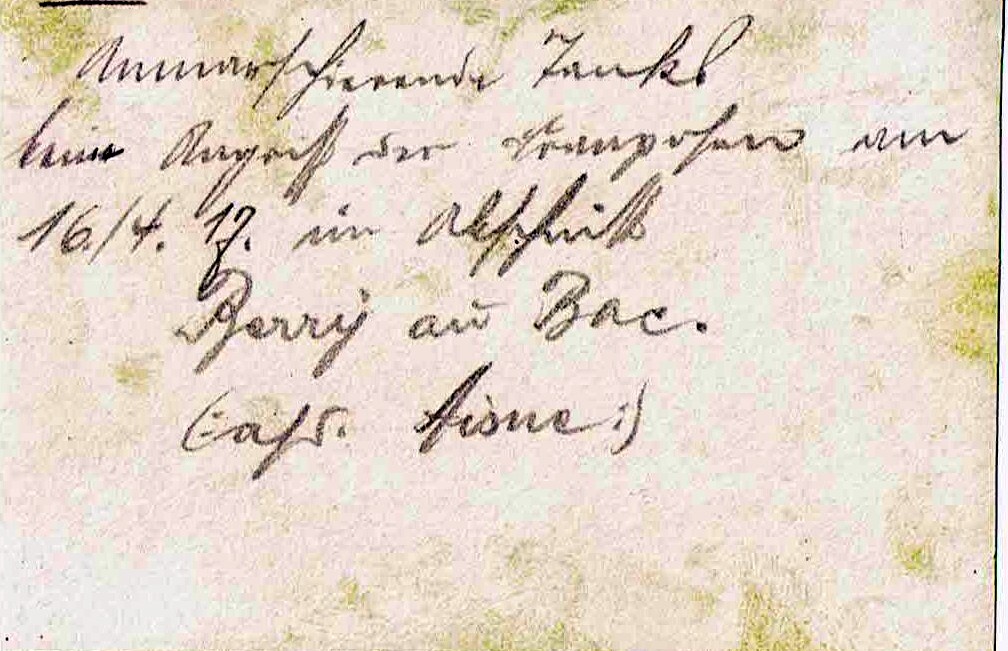 Anmarschierende Tanks
beim Angriff der Franzosen am
16./4. 17. im Abschnitt
Berry au Bac.
Aisne:)